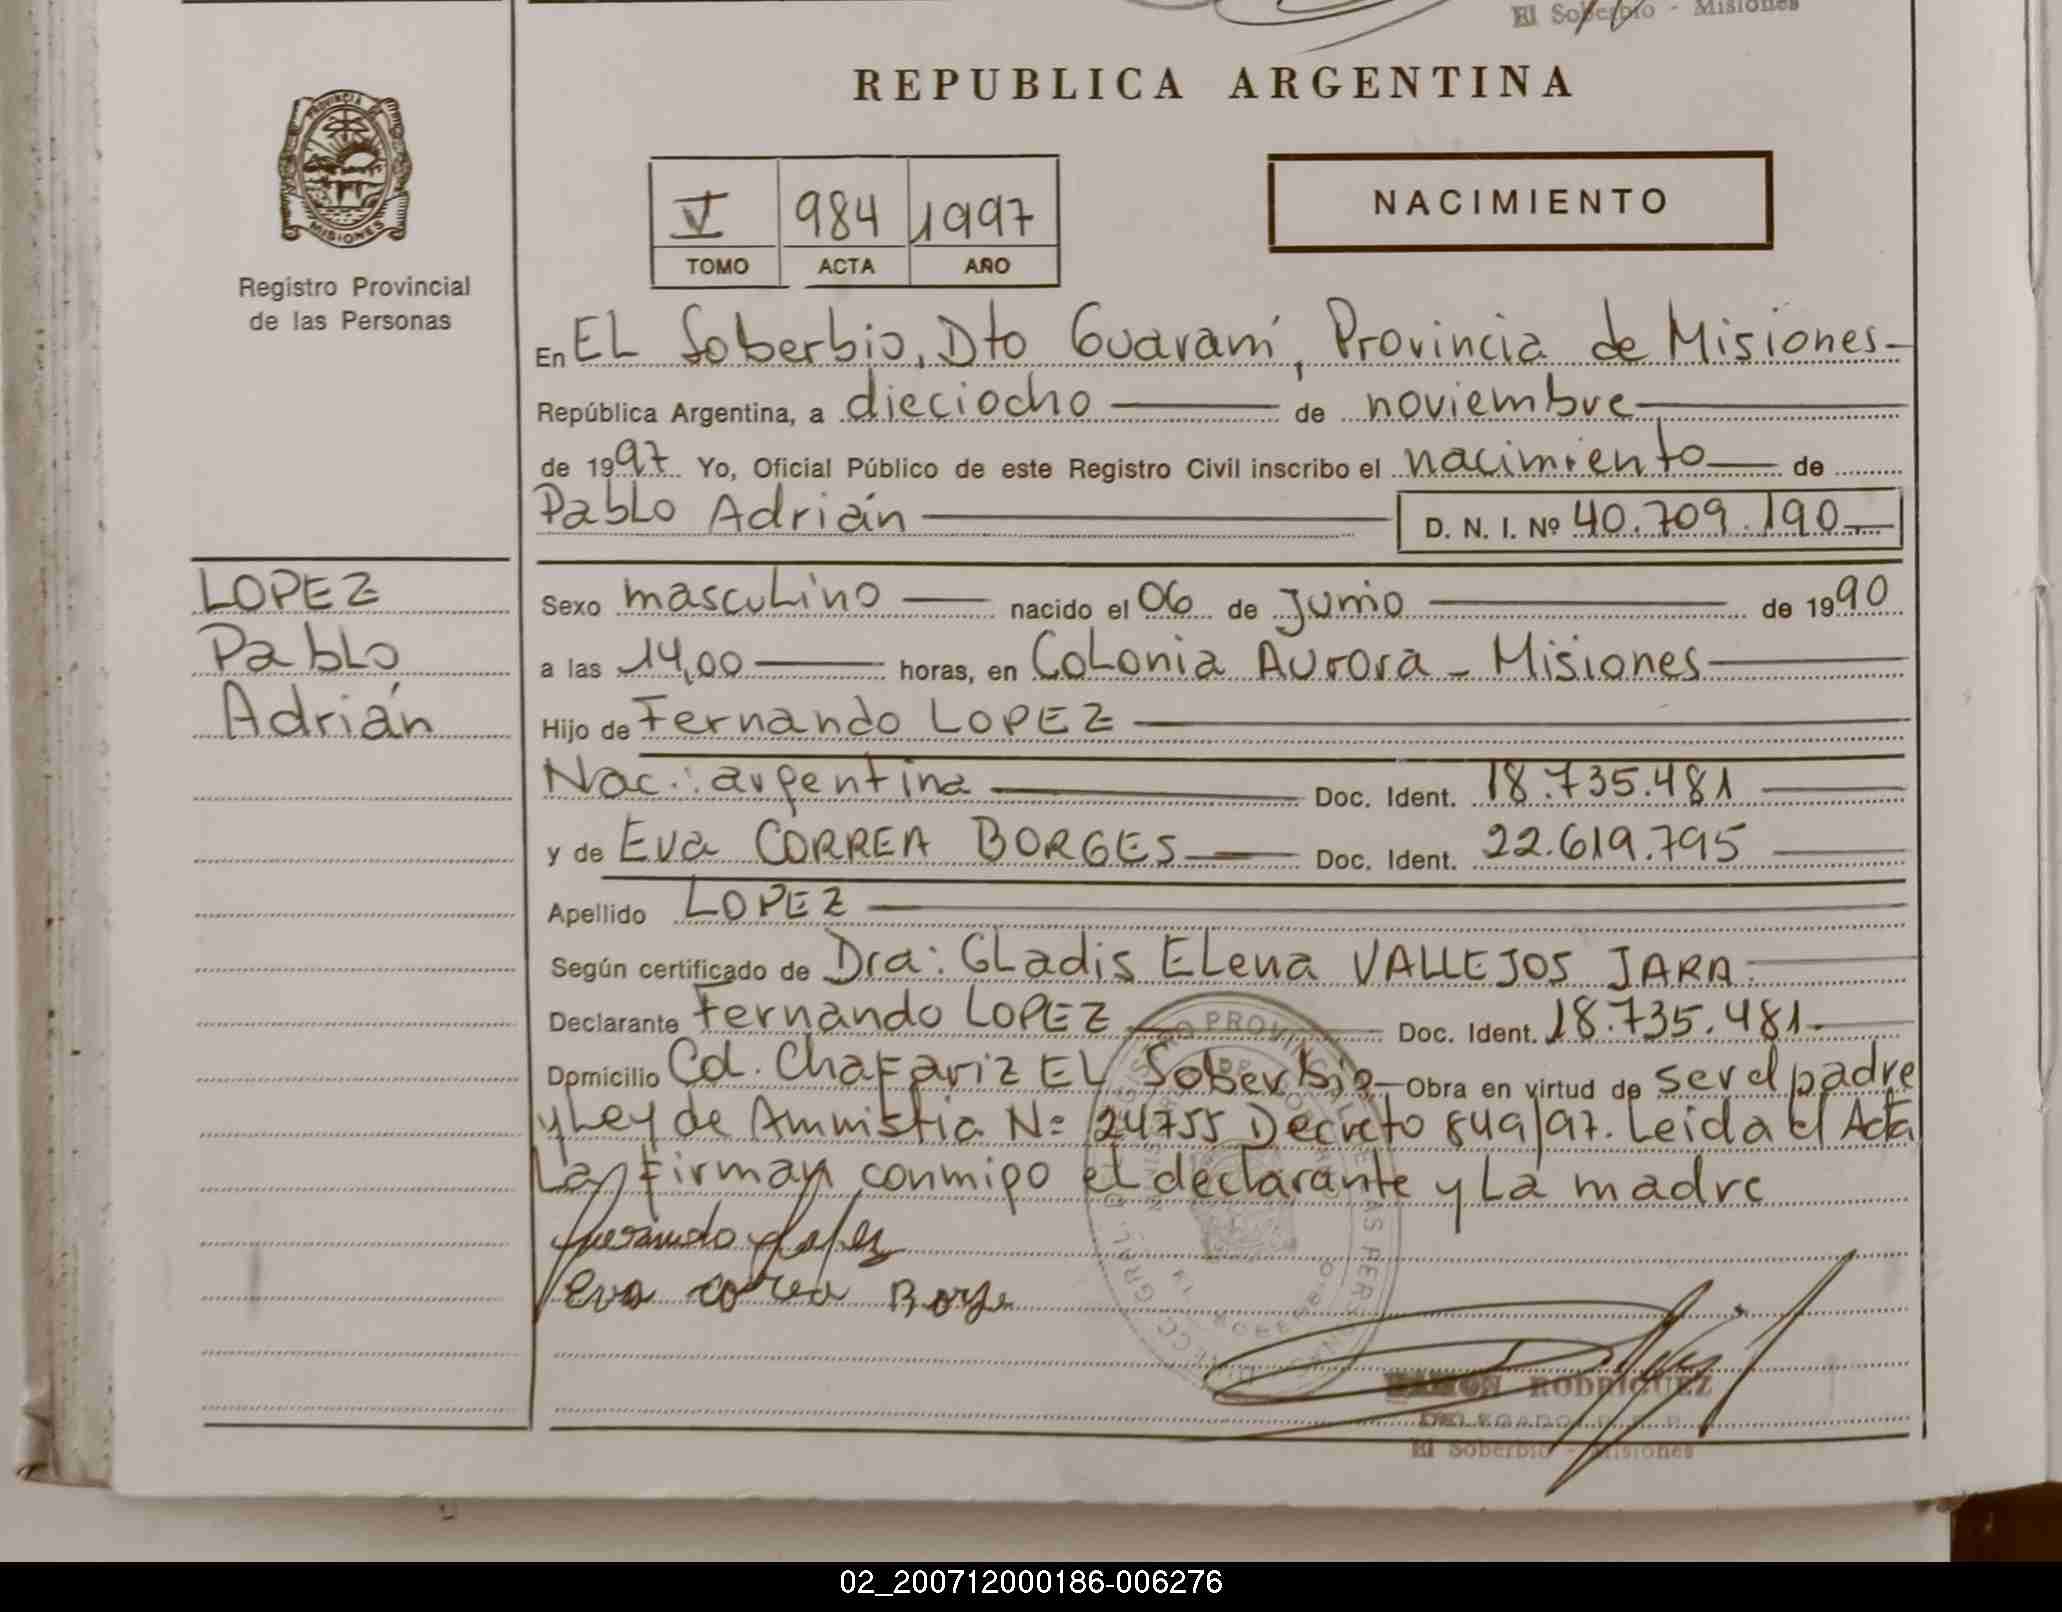 El Soberbio - Misiones
REPUBLICA ARGENTINA
PROVINCIA DE
MISIONES
Registro Provincial
de las Personas
V 984 1997
TOMO ACTA AÑO
NACIMIENTO
En EL Soberbio, Dto Guaraní, Provincia de Misiones
República Argentina, a dieciocho de noviembre
de 1997 Yo, Oficial Público de este Registro Civil inscribo el nacimiento de
Pablo Adrián D. N. I. Nº 40.709.190
LOPEZ
Pablo
Adrián
Sexo masculino nacido el 06 de junio de 1990
a las 14,00 horas, en Colonia Aurora - Misiones
Hijo de Fernando LOPEZ
Nac.: argentina Doc. Ident. 18.735.481
y de Eva CORREA BORGES Doc. Ident. 22.619.795
Apellido LOPEZ
Según certificado de Dra: Gladis Elena VALLEJOS JARA
Declarante Fernando LOPEZ Doc. Ident. 18.735.481
Domicilio Col. Chafariz EL Soberbio Obra en virtud de ser el padre
y Ley de Amnistia Nº 24755 Decreto 849/97. Leida el Acta
La firman conmigo el declarante y La madre
Fernando Lopez
Eva Correa Borge
RAMON RODRIGUEZ
DELEGADO R. P. P.
El Soberbio - Misiones
02_200712000186-006276